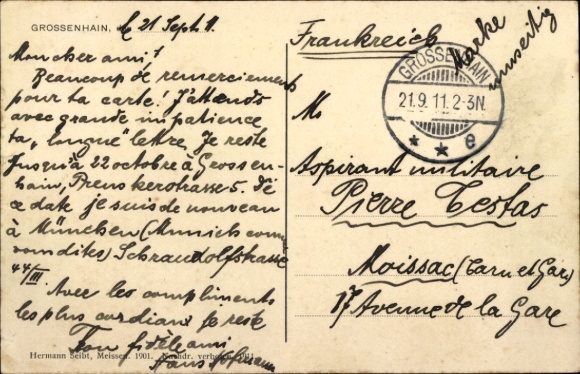 GROSSENHAIN, le 21 Sept. 11.
Mon cher ami!
Beaucoup de remerciements
pour ta carte! J'attends
avec grande impatience
ta „longue" lettre. Je reste
jusqu'à 22 octobre à Grossen-
hain, Preuskerstrasse 5. Dé
ce date je suis de nouveau
à München (Munich comme
vous dites) Schraudolfstrasse
44/III.
Avec les compliments
les plus cordiaux je reste
Ton fidèle ami
Hans
Hermann Seibt, Meissen. 1901. Nachdr. verboten.
Frankreich
Marke
umseitig
GROSSENHAIN
21.9.11.2-3N.
* * e
Aspirant militaire
Pierre Testas
Moissac (Tarn et Gar)
17 Avenue de la Gare